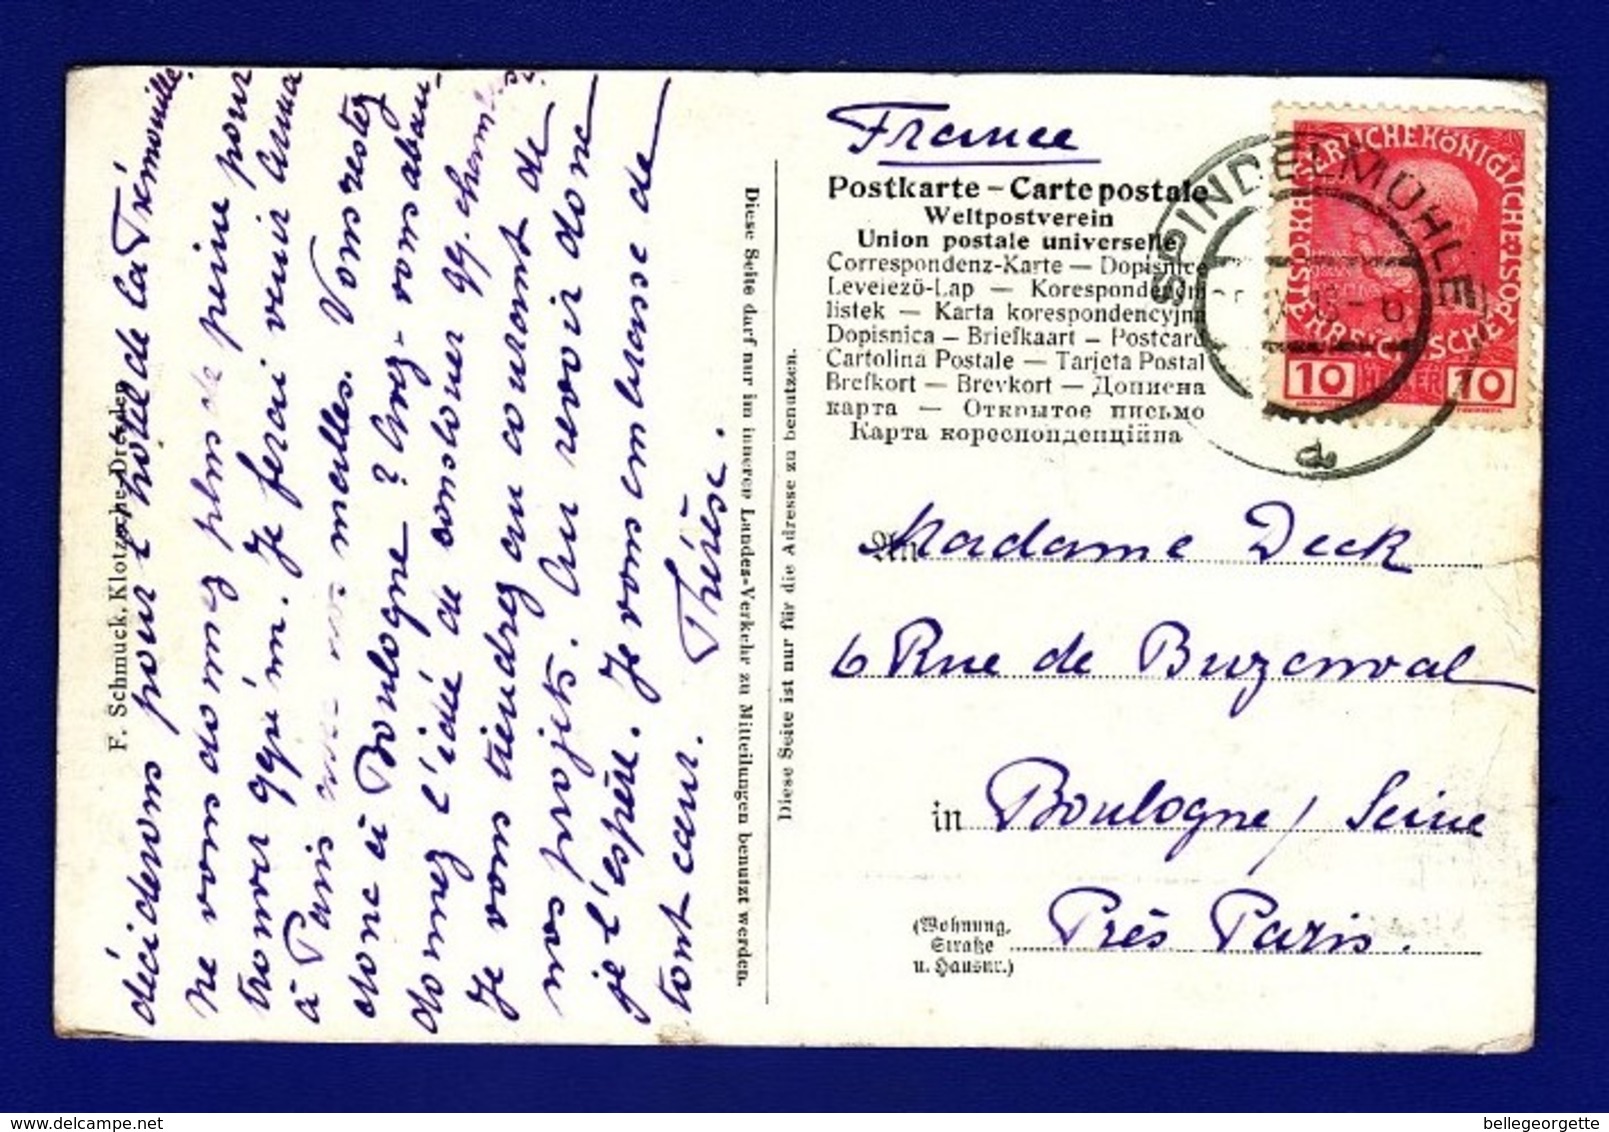 décidons pour l'hôtel de la Trémouille.
Ne vous donnez plus de peine pour
trouver qq'un. Je ferai venir Anna
à Paris avec nos malles. Vous restez
donc à Boulogne ? Avez-vous aban-
donnez l'idée de consulter qq. chose?
Je vous tiendrez au courant de
nos projets. Au revoir donc
je l'espère. Je vous embrasse de
tout cœur. Thérèse.
F. Schmuck, Klotzsche-Dresden
Diese Seite darf nur im inneren Landes-Verkehr zu Mitteilungen benutzt werden.
Diese Seite ist nur für die Adresse zu benutzen.
France
Postkarte – Carte postale
Weltpostverein
Union postale universelle
Correspondenz-Karte — Dopisnice
Levelező-Lap — Korespondenční
listek — Karta korespondencyjna
Dopisnica — Briefkaart — Postcard
Cartolina Postale — Tarjeta Postal
Brefkort — Brevkort — Дописна
карта — Открытое письмо
Карта кореспонденційна
SPINDELMÜHLE
KAISERLICHE KÖNIGLICHE ÖSTERREICHISCHE POST
10 HELLER 10
An Madame Deck
6 Rue de Buzenval
in Boulogne / Seine
(Wohnung, Straße u. Hausnr.)
Près Paris.
bellegeorgette